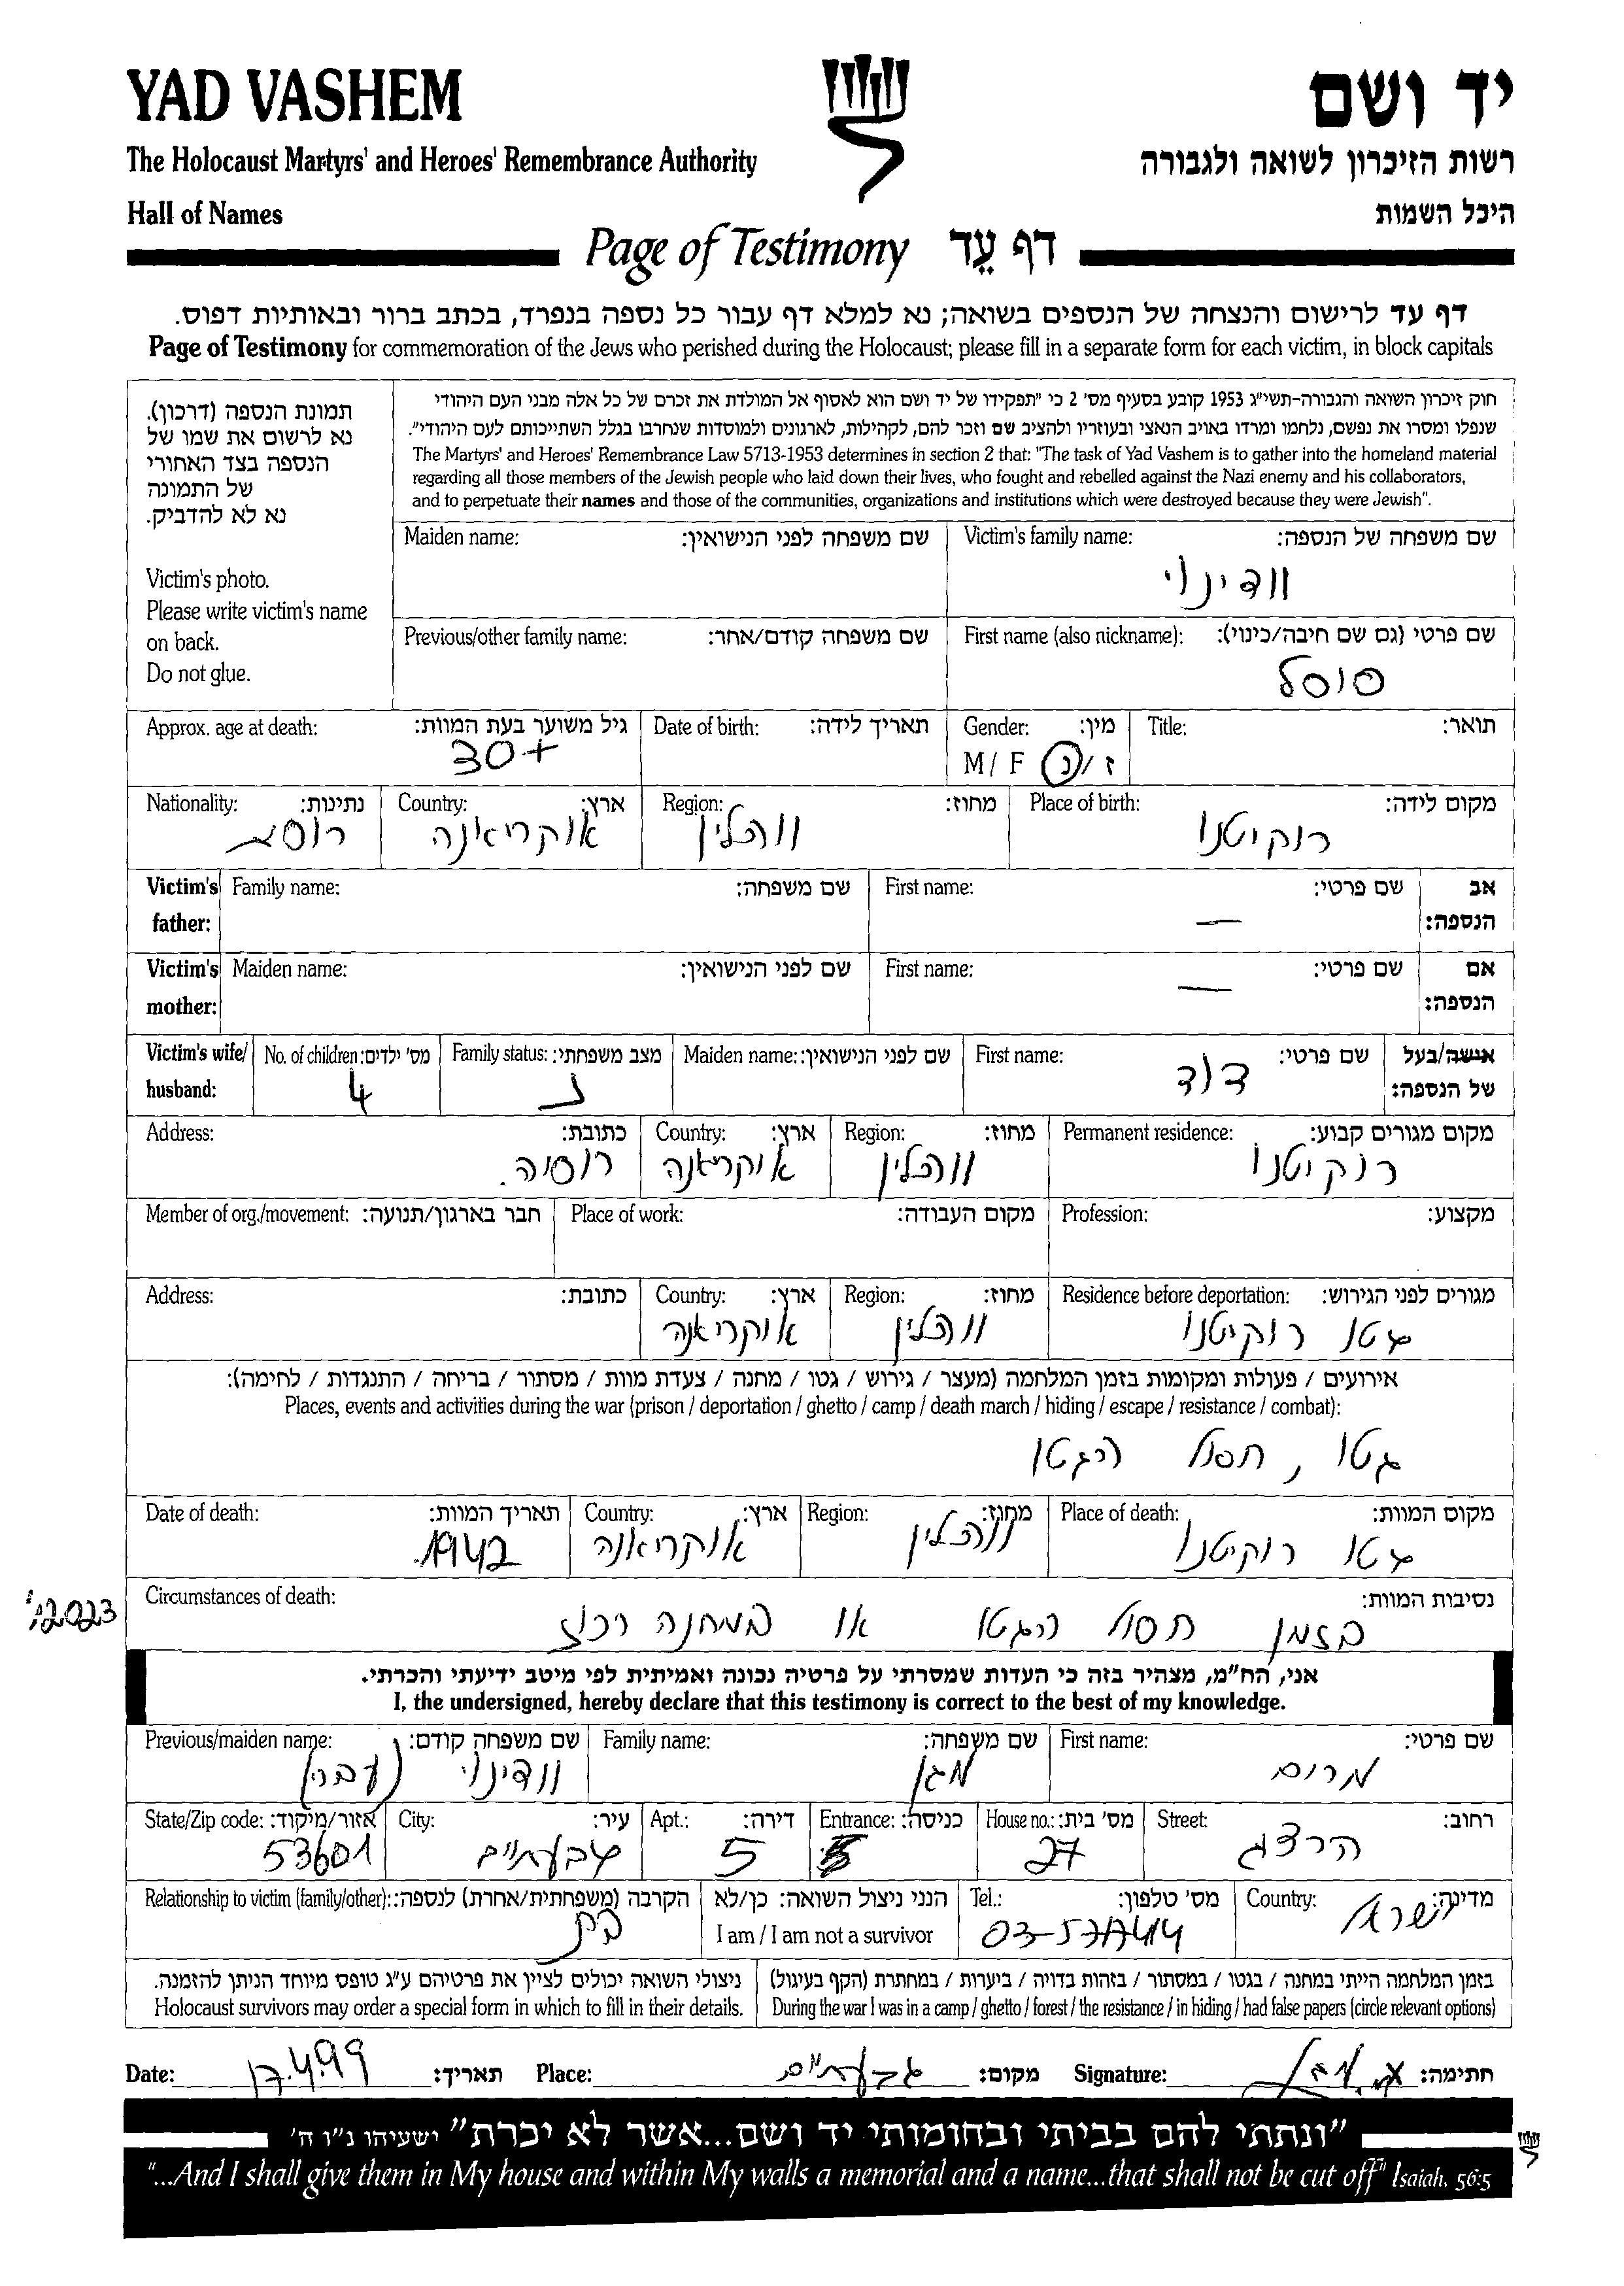 YAD VASHEM
יד ושם
The Holocaust Martyrs' and Heroes' Remembrance Authority
רשות הזיכרון לשואה ולגבורה
Hall of Names
היכל השמות
Page of Testimony דף עֵד
דף עד לרישום והנצחה של הנספים בשואה; נא למלא דף עבור כל נספה בנפרד, בכתב ברור ובאותיות דפוס.
Page of Testimony for commemoration of the Jews who perished during the Holocaust; please fill in a separate form for each victim, in block capitals
תמונת הנספה (דרכון).
נא לרשום את שמו של
הנספה בצד האחורי
של התמונה
נא לא להדביק.
Victim's photo.
Please write victim's name
on back.
Do not glue.
חוק זיכרון השואה והגבורה-תשי"ג 1953 קובע בסעיף מס' 2 כי "תפקידו של יד ושם הוא לאסוף אל המולדת את זכרם של כל אלה מבני העם היהודי
שנפלו ומסרו את נפשם, נלחמו ומרדו באויב הנאצי ובעוזריו ולהציב שם וזכר להם, לקהילות, לארגונים ולמוסדות שנחרבו בגלל השתייכותם לעם היהודי".
The Martyrs' and Heroes' Remembrance Law 5713-1953 determines in section 2 that: "The task of Yad Vashem is to gather into the homeland material
regarding all those members of the Jewish people who laid down their lives, who fought and rebelled against the Nazi enemy and his collaborators,
and to perpetuate their names and those of the communities, organizations and institutions which were destroyed because they were Jewish".
Maiden name: שם משפחה לפני הנישואין:
Victim's family name: שם משפחה של הנספה:
וודינוי
Previous/other family name: שם משפחה קודם/אחר:
First name (also nickname): שם פרטי (גם שם חיבה/כינוי):
סוסל
Approx. age at death: גיל משוער בעת המוות:
30+
Date of birth: תאריך לידה:
Gender: מין:
M/ F ז/נ
Title: תואר:
Nationality: נתינות:
Country: ארץ:
אוקריאינה
Region: מחוז:
ווהלין
Place of birth: מקום לידה:
רוקיטנו
Victim's father: Family name: שם משפחה:
First name: שם פרטי:
—
אב הנספה:
Victim's mother: Maiden name: שם לפני הנישואין:
First name: שם פרטי:
—
אם הנספה:
Victim's wife/ husband: No. of children: מס' ילדים:
4
Family status: מצב משפחתי:
נ
Maiden name: שם לפני הנישואין:
First name: שם פרטי:
דוד
אישה/בעל של הנספה:
Address: כתובת:
רוסיה.
Country: ארץ:
אוקריאנה
Region: מחוז:
ווהלין
Permanent residence: מקום מגורים קבוע:
רוקיטנו
Member of org./movement: חבר בארגון/תנועה:
Place of work: מקום העבודה:
Profession: מקצוע:
Address: כתובת:
Country: ארץ:
אוקריאנה
Region: מחוז:
ווהלין
Residence before deportation: מגורים לפני הגירוש:
גטו רוקיטנו
אירועים / פעולות ומקומות בזמן המלחמה (מעצר / גירוש / גטו / מחנה / צעדת מוות / מסתור / בריחה / התנגדות / לחימה):
Places, events and activities during the war (prison / deportation / ghetto / camp / death march / hiding / escape / resistance / combat):
גטו , חסול הגטו
Date of death: תאריך המוות:
1942
Country: ארץ:
אוקריאנה
Region: מחוז:
ווהלין
Place of death: מקום המוות:
גטו רוקיטנו
Circumstances of death: נסיבות המוות:
בזמן חסול הגטו או במחנה רכוז
אני, הח"מ, מצהיר בזה כי העדות שמסרתי על פרטיה נכונה ואמיתית לפי מיטב ידיעתי והכרתי.
I, the undersigned, hereby declare that this testimony is correct to the best of my knowledge.
Previous/maiden name: שם משפחה קודם:
וודינוי
Family name: שם משפחה:
מגן
First name: שם פרטי:
מרום
State/Zip code: אזור/מיקוד:
53601
City: עיר:
גבעתיים
Apt.: דירה:
5
Entrance: כניסה:
House no.: מס' בית:
27
Street: רחוב:
הרצוג
Relationship to victim (family/other): הקרבה (משפחתית/אחרת) לנספה:
בת
הנני ניצול השואה: כן/לא
I am / I am not a survivor
Tel.: מס' טלפון:
Country: מדינה:
ישראל
ניצולי השואה יכולים לציין את פרטיהם ע"ג טופס מיוחד הניתן להזמנה.
Holocaust survivors may order a special form in which to fill in their details.
בזמן המלחמה הייתי במחנה / בגטו / במסתור / בזהות בדויה / ביערות / במחתרת (הקף בעיגול)
During the war I was in a camp / ghetto / forest / the resistance / in hiding / had false papers (circle relevant options)
Date: 17.4.99 תאריך: Place: גבעתיים מקום: Signature: חתימה:
"ונתתי להם בביתי ובחומותי יד ושם...אשר לא יכרת" ישעיהו נ"ו ה'
"...And I shall give them in My house and within My walls a memorial and a name...that shall not be cut off" Isaiah, 56:5